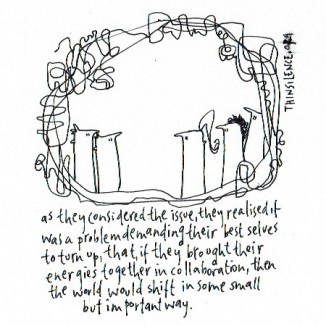 THINSILENCE.ORG
as they considered the issue, they realised it
was a problem demanding their best selves
to turn up, that, if they brought their
energies together in collaboration, then
the world would shift in some small
but important way.